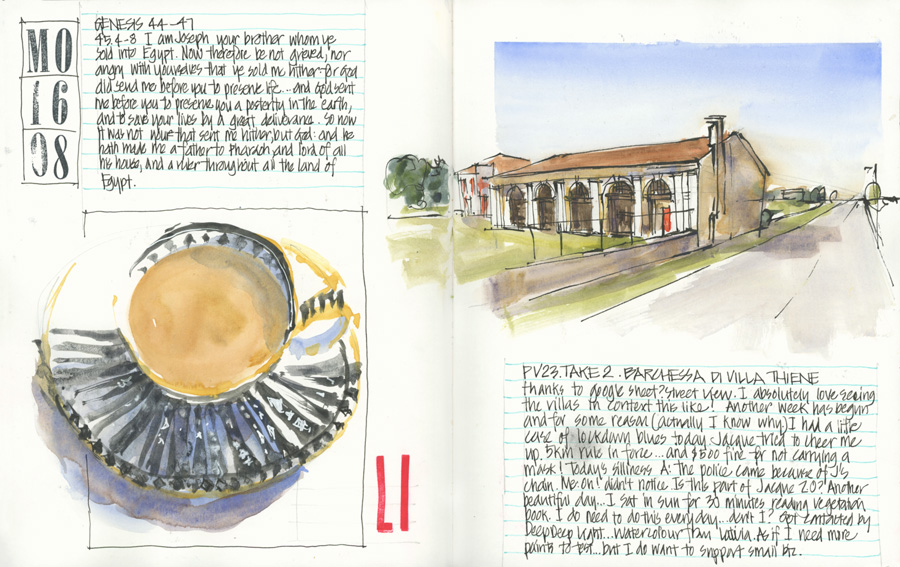 MO
16
08
GENESIS 44-47
45.4-8 I am Joseph, your brother whom ye
sold into Egypt. Now therefore be not grieved, nor
angry with yourselves that ye sold me hither: for God
did send me before you to preserve life... and God sent
me before you to preserve you a posterity in the earth,
and to save your lives by a great deliverance. So now
it was not you that sent me hither, but God: and he
hath made me a father to Pharaoh and lord of all
his house, and a ruler throughout all the land of
Egypt.
LI
PV23.TAKE 2. BARCHESSA DI VILLA THIENE
thanks to google street view. I absolutely love seeing
the villas in context this like! Another week has begun
and for some reason (actually I know why) I had a little
case of lockdown blues today. Jacque tried to cheer me
up. 5km rule in force... and $500 fine for not carrying a
mask! Today's silliness. A: the police came because of J's
chain. Me: oh I didn't notice. Is this part of Jacque 2.0? Another
beautiful day... I sat in sun for 30 minutes reading vegetation
book. I do need to do this every day... don't I? Got contacted by
Deep Deep Light... watercolour from Latvia. As if I need more
paints to test... but I do want to support small biz.